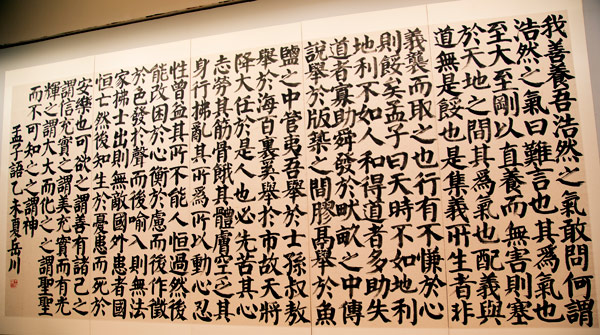 我善養吾浩然之氣敢問何謂
浩然之氣曰難言也其爲氣也
至大至剛以直養而無害則塞
於天地之間其爲氣也配義與
道無是餒也是集義所生者非
義襲而取之也行有不慊於心
則餒矣孟子曰天時不如地利
地利不如人和得道者多助失
道者寡助舜發於畎畝之中傅
說舉於版築之間膠鬲舉於魚
鹽之中管夷吾舉於士孫叔敖
舉於海百里奚舉於市故天將
降大任於是人也必先苦其心
志勞其筋骨餓其體膚空乏其
身行拂亂其所爲所以動心忍
性曾益其所不能人恒過然後
能改困於心衡於慮而後作徵
於色發於聲而後喻入則無法
家拂士出則無敵國外患者國
恒亡然後知生於憂患而死於
安樂也可欲之謂善有諸己之
謂信充實之謂美充實而有光
輝之謂大大而化之之謂聖聖
而不可知之之謂神
孟子語乙未夏岳川